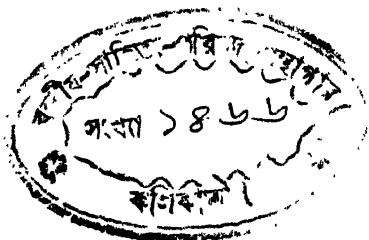 বঙ্গীয়-সাহিত্য-পরিষদ্ গ্রন্থাগার
সংখ্যা ১৪৬৬
কলিকাতা